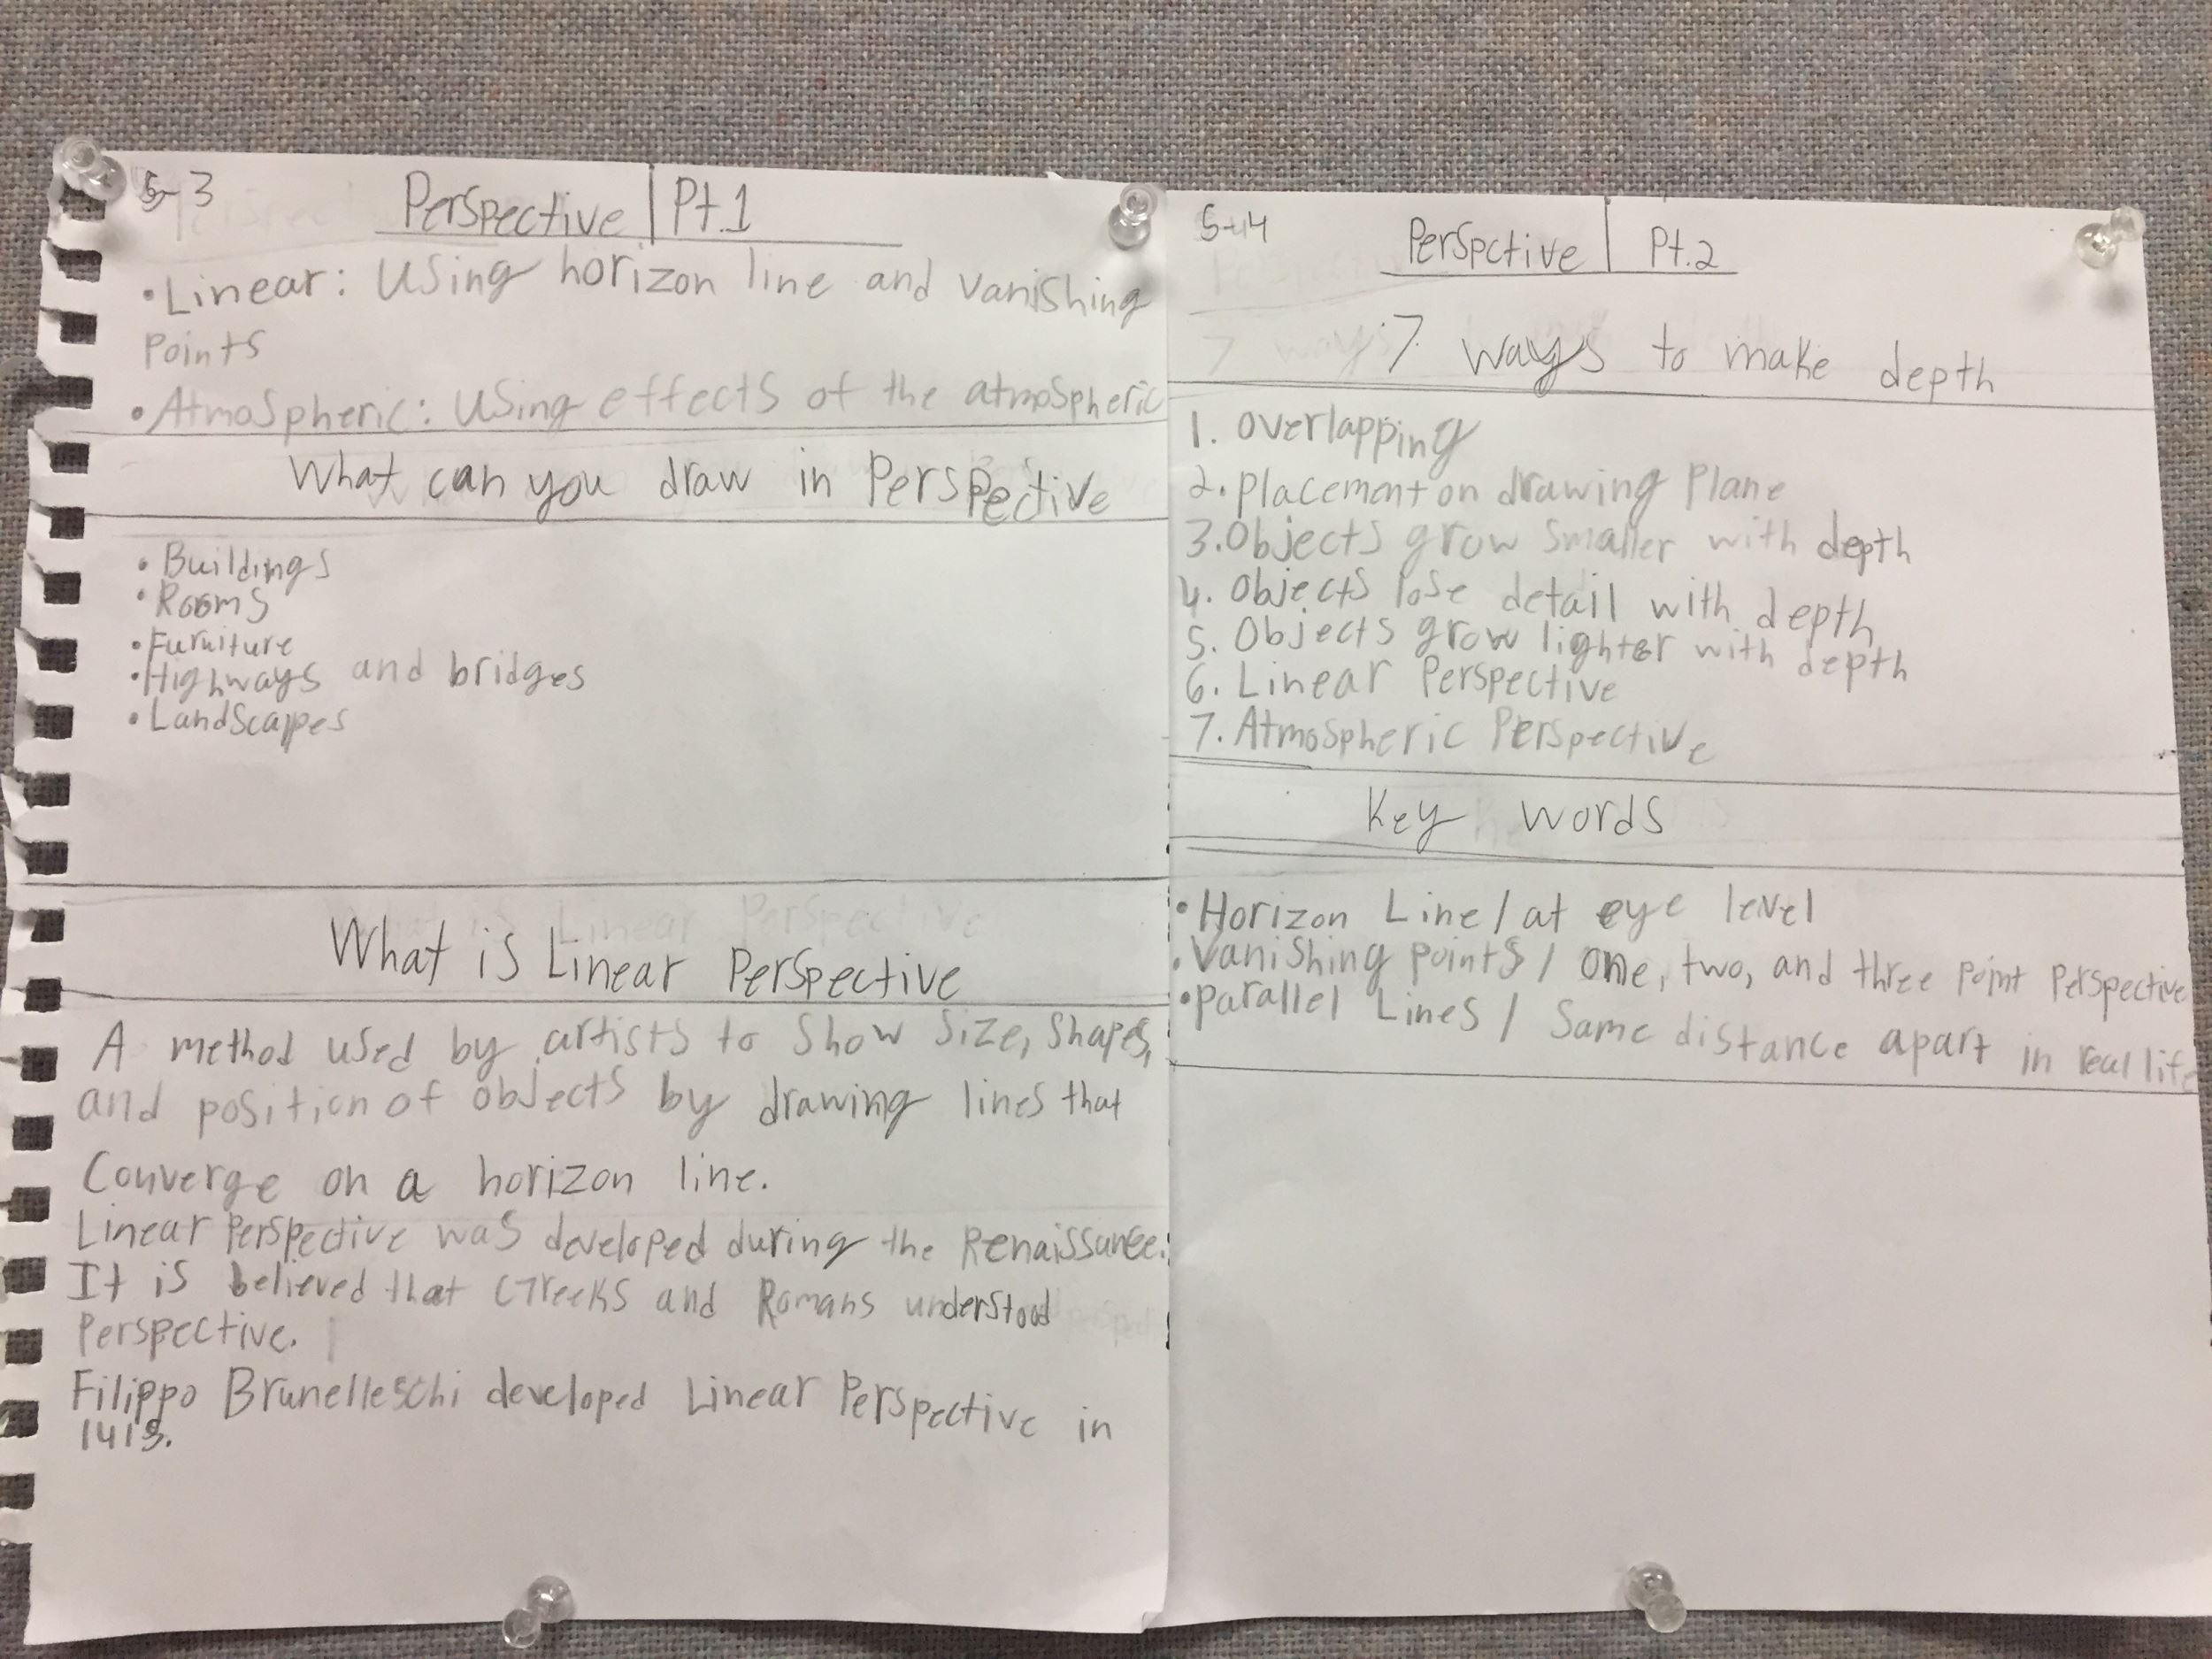 5-3
Perspective | Pt.1
• Linear: Using horizon line and vanishing
Points
• Atmospheric: Using effects of the atmospheric
What can you draw in Perspective
• Buildings
• Rooms
• Furniture
• Highways and bridges
• Landscapes
What is Linear Perspective
A method used by artists to show size, shapes,
and position of objects by drawing lines that
Converge on a horizon line.
Linear Perspective was developed during the Renaissance.
It is believed that Greeks and Romans understood
Perspective.
Filippo Brunelleschi developed Linear Perspective in
5-14
Perspctive | Pt.2
7 ways to make depth
1. Overlapping
2. Placement on drawing Plane
3. Objects grow smaller with depth
4. Objects lose detail with depth
5. Objects grow lighter with depth
6. Linear Perspective
7. Atmospheric Perspective
Key words
• Horizon Line / at eye level
• Vanishing points / One, two, and three point Perspective
• parallel Lines / Same distance apart in real life